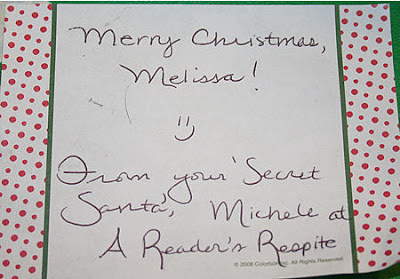 Merry Christmas,
Melissa!
From your 'Secret
Santa', Michele at
A Reader's Respite
© 2008 Colorbök, Inc. All Rights Reserved